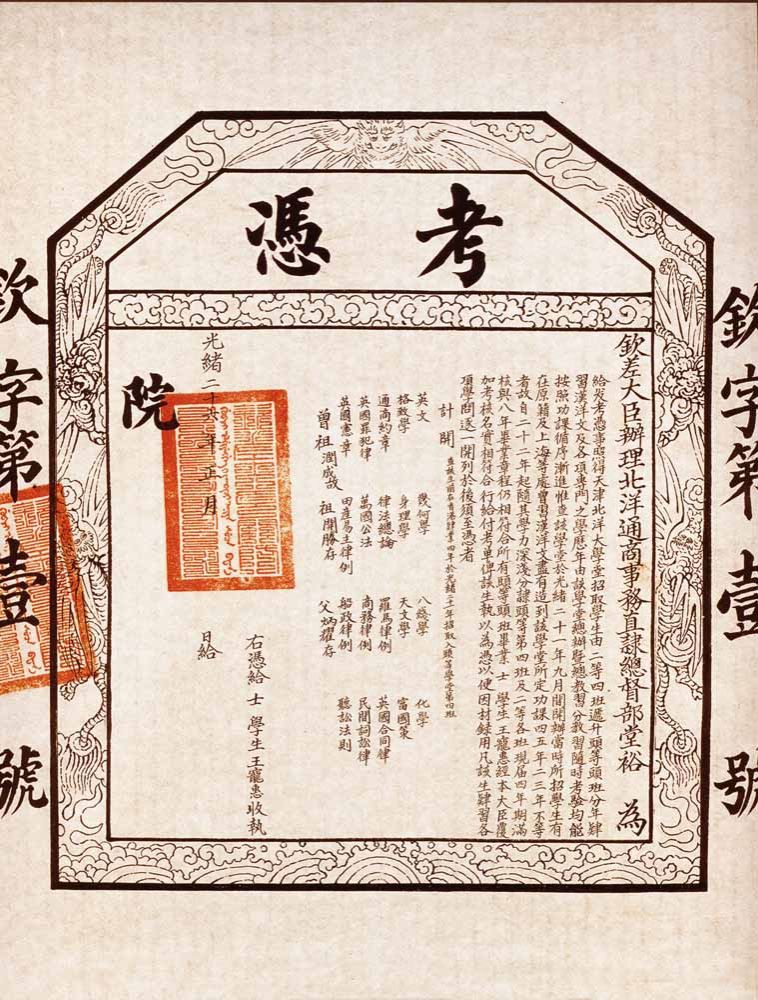 考憑
欽字第壹號
欽差大臣辦理北洋通商事務直隸總督部堂裕 為
給發考憑事照得天津北洋大學堂招取學生由二等四班遞升頭等頭班分年肄
習漢洋文及各項專門之學歷年由該學堂總辦暨總教習分教習隨時考驗均能
按照功課循序漸進惟查該學堂於光緒二十一年九月間開辦當時所招學生有
在原籍及上海等處曾習漢洋文盡有造到該學堂所定功課四五年二三年不等
者故自二十二年起隨其學力深淺分隸頭等第四班及二等各班現屆四年期滿
核與八年畢業章程仍相符合所有頭等頭班畢業 士 學生王寵惠經本大臣覆
加考核名實相符合行給付考單傳該生執以為憑以便因材錄用凡該生肄習各
項學問逐一開列於後須至憑者
計開 查該生前在香港肄業四年於光緒二十一年招取入頭等學堂第四班
英文 幾何學 八綫學 化學
格致學 身理學 天文學 富國策
通商約章 律法總論 羅馬律例 英國合同律
英國罪犯律 萬國公法 商務律例 民間詞訟律
英國憲章 田產易主律例 船政律例 聽訟法則
曾祖潤成故 祖開勝存 父炳耀存
右憑給 士 學生王寵惠收執
光緒二十六年正月 日給
院
欽字第壹號